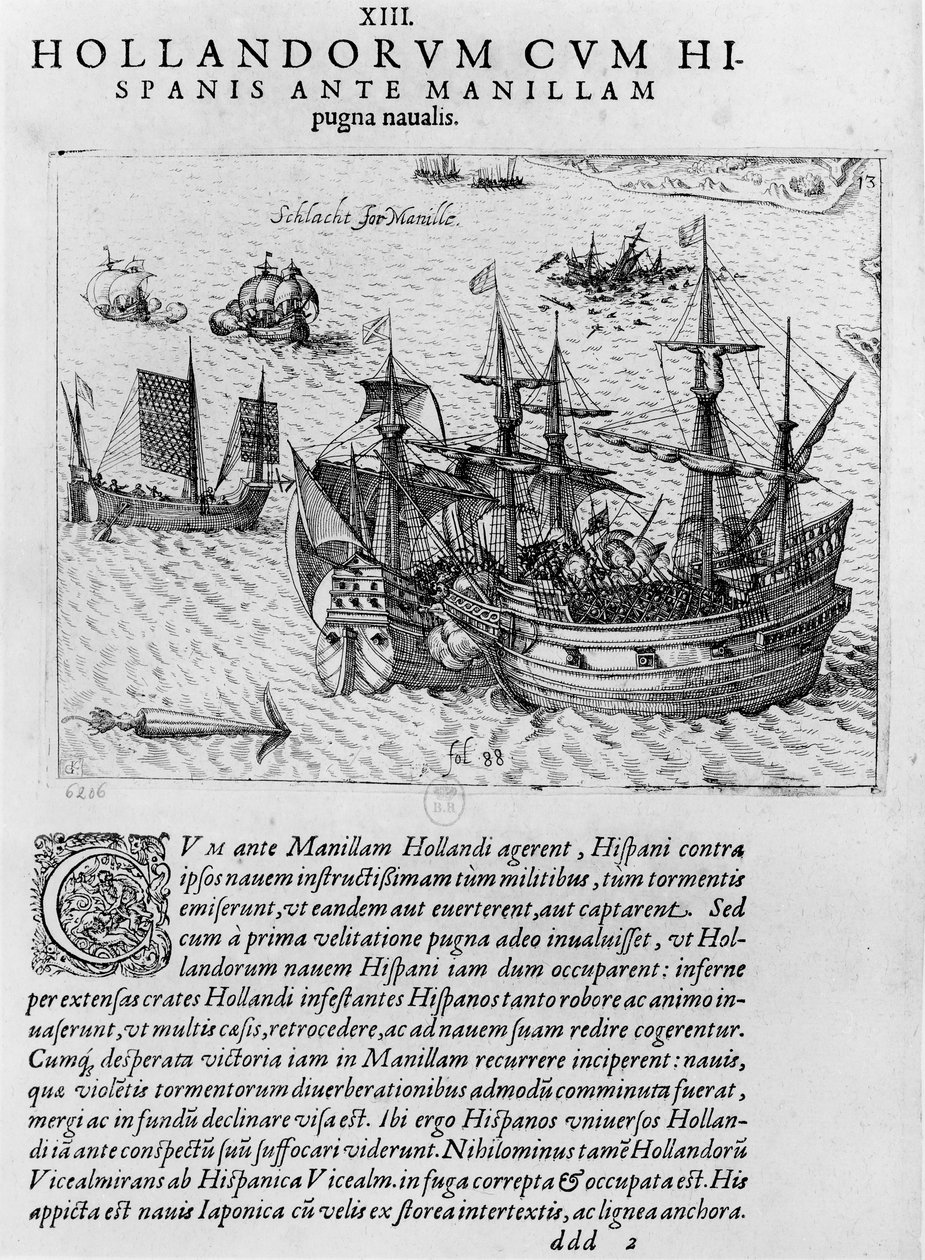 XIII.
HOLLANDORVM CVM HI-
SPANIS ANTE MANILLAM
pugna naualis.
13
Schlacht for Manille.
fol 88
6206
B.R
CVM ante Manillam Hollandi agerent, Hiſpani contra
ipſos nauem inſtructiſsimam tùm militibus, tùm tormentis
emiſerunt, vt eandem aut euerterent, aut captarent. Sed
cum à prima velitatione pugna adeo inualuiſſet, vt Hol-
landorum nauem Hiſpani iam dum occuparent: inferne
per extenſas crates Hollandi infeſtantes Hiſpanos tanto robore ac animo in-
uaſerunt, vt multis cæſis, retrocedere, ac ad nauem ſuam redire cogerentur.
Cumq́ꝫ deſperata victoria iam in Manillam recurrere inciperent: nauis,
quæ violẽtis tormentorum diuerberationibus admodũ comminuta fuerat,
mergi ac in fundũ declinare viſa eſt. Ibi ergo Hiſpanos vniuerſos Hollan-
di iã ante conſpectũ ſuũ ſuffocari viderunt. Nihilominus tamẽ Hollandorũ
Vicealmirans ab Hiſpanica Vicealm. in fuga correpta & occupata eſt. His
appicta eſt nauis Iaponica cũ velis ex ſtorea intertextis, ac lignea anchora.
ddd 2